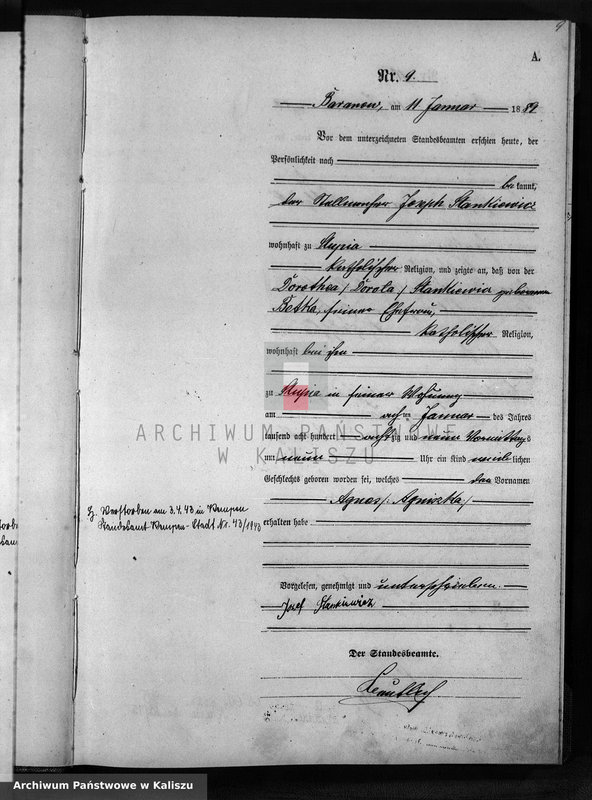 A.
Nr. 9.
Baranow, am 11 Januar 1889
Vor dem unterzeichneten Standesbeamten erschien heute, der
Persönlichkeit nach
bekannt,
der Stellmacher Joseph Stankiewicz
wohnhaft zu Slupia
katholischer Religion, und zeigte an, daß von der
Dorothea /Dorota/ Stankiewicz geborenen
Betka, seiner Ehefrau,
katholischer Religion,
wohnhaft bei ihm
zu Slupia in seiner Wohnung
am acht ten Januar des Jahres
tausend acht hundert achtzig und neun Vormittags
um neun Uhr ein Kind weiblichen
Geschlechts geboren worden sei, welches den Vornamen
Agnes /Agnieszka/
erhalten habe
Vorgelesen, genehmigt und unterschrieben.
Józef Stankiewicz
Der Standesbeamte.
Verstorben am 3.4.43 in Kempen
Standesamt Kempen-Stadt Nr. 43/1943
ARCHIWUM PAŃSTWOWE
W KALISZU
Archiwum Państwowe w Kaliszu